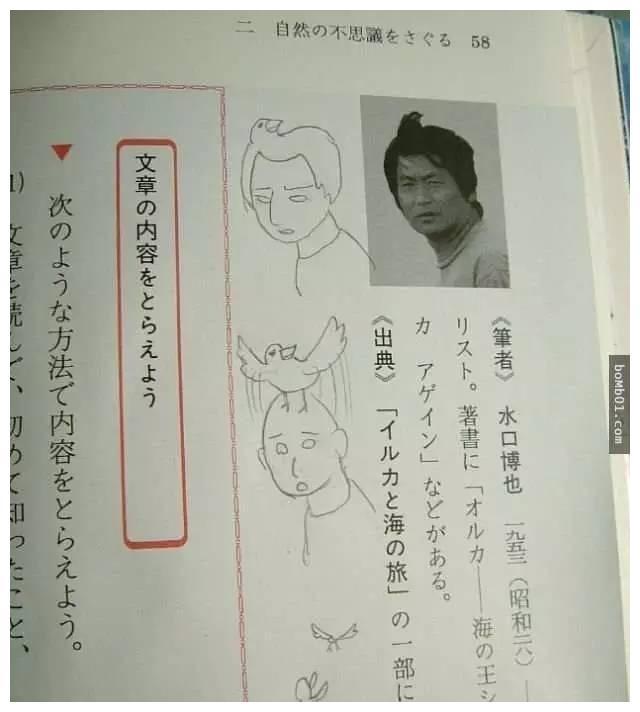 二 自然の不思議をさぐる 58
《筆者》 水口博也 一九五三(昭和二八)—
リスト。著書に「オルカ——海の王シ
カ アゲイン」などがある。
《出典》 「イルカと海の旅」の一部に
文章の内容をとらえよう
▼ 次のような方法で内容をとらえよう。
1) 文章を読んで、初めて知ったこと、
boMb01.com